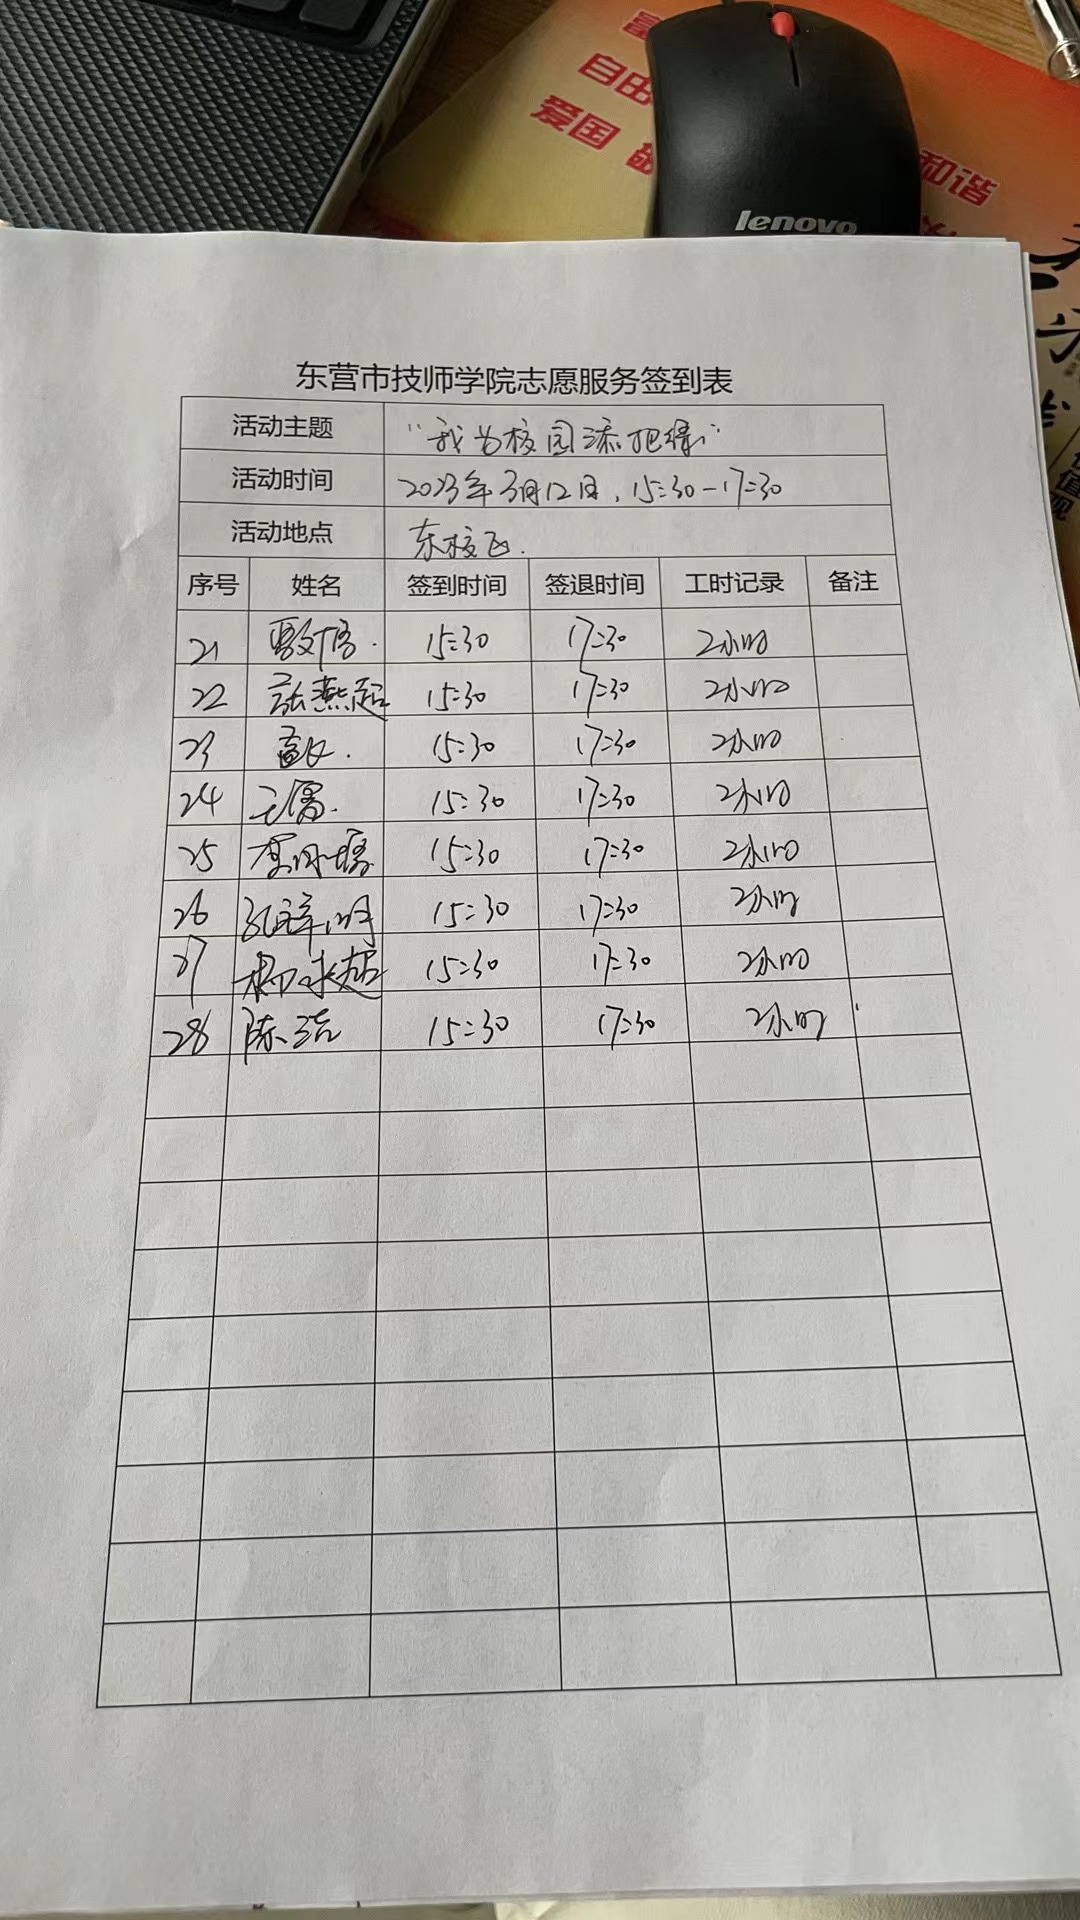 自由
爱国
和谐
lenovo
值
观
东营市技师学院志愿服务签到表
活动主题 “我为校园添把绿”
活动时间 2023年3月12日，15:30-17:30
活动地点 东校区.
序号 姓名 签到时间 签退时间 工时记录 备注
21 15:30 17:30 2小时
22 张燕超 15:30 17:30 2小时
23 15:30 17:30 2小时
24 15:30 17:30 2小时
25 15:30 17:30 2小时
26 15:30 17:30 2小时
27 柳永超 15:30 17:30 2小时
28 陈洁 15:30 17:30 2小时